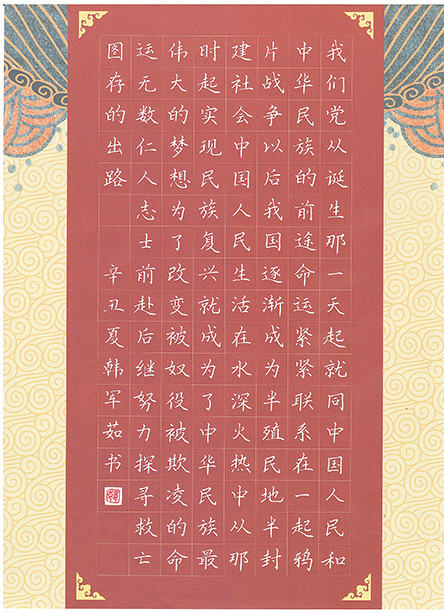 我们党从诞生那一天起就同中国人民和
中华民族的前途命运紧紧联系在一起鸦
片战争以后我国逐渐成为半殖民地半封
建社会中国人民生活在水深火热中从那
时起实现民族复兴就成为了中华民族最
伟大的梦想为了改变被奴役被欺凌的命
运无数仁人志士前赴后继努力探寻救亡
图存的出路 辛丑夏韩军茹书